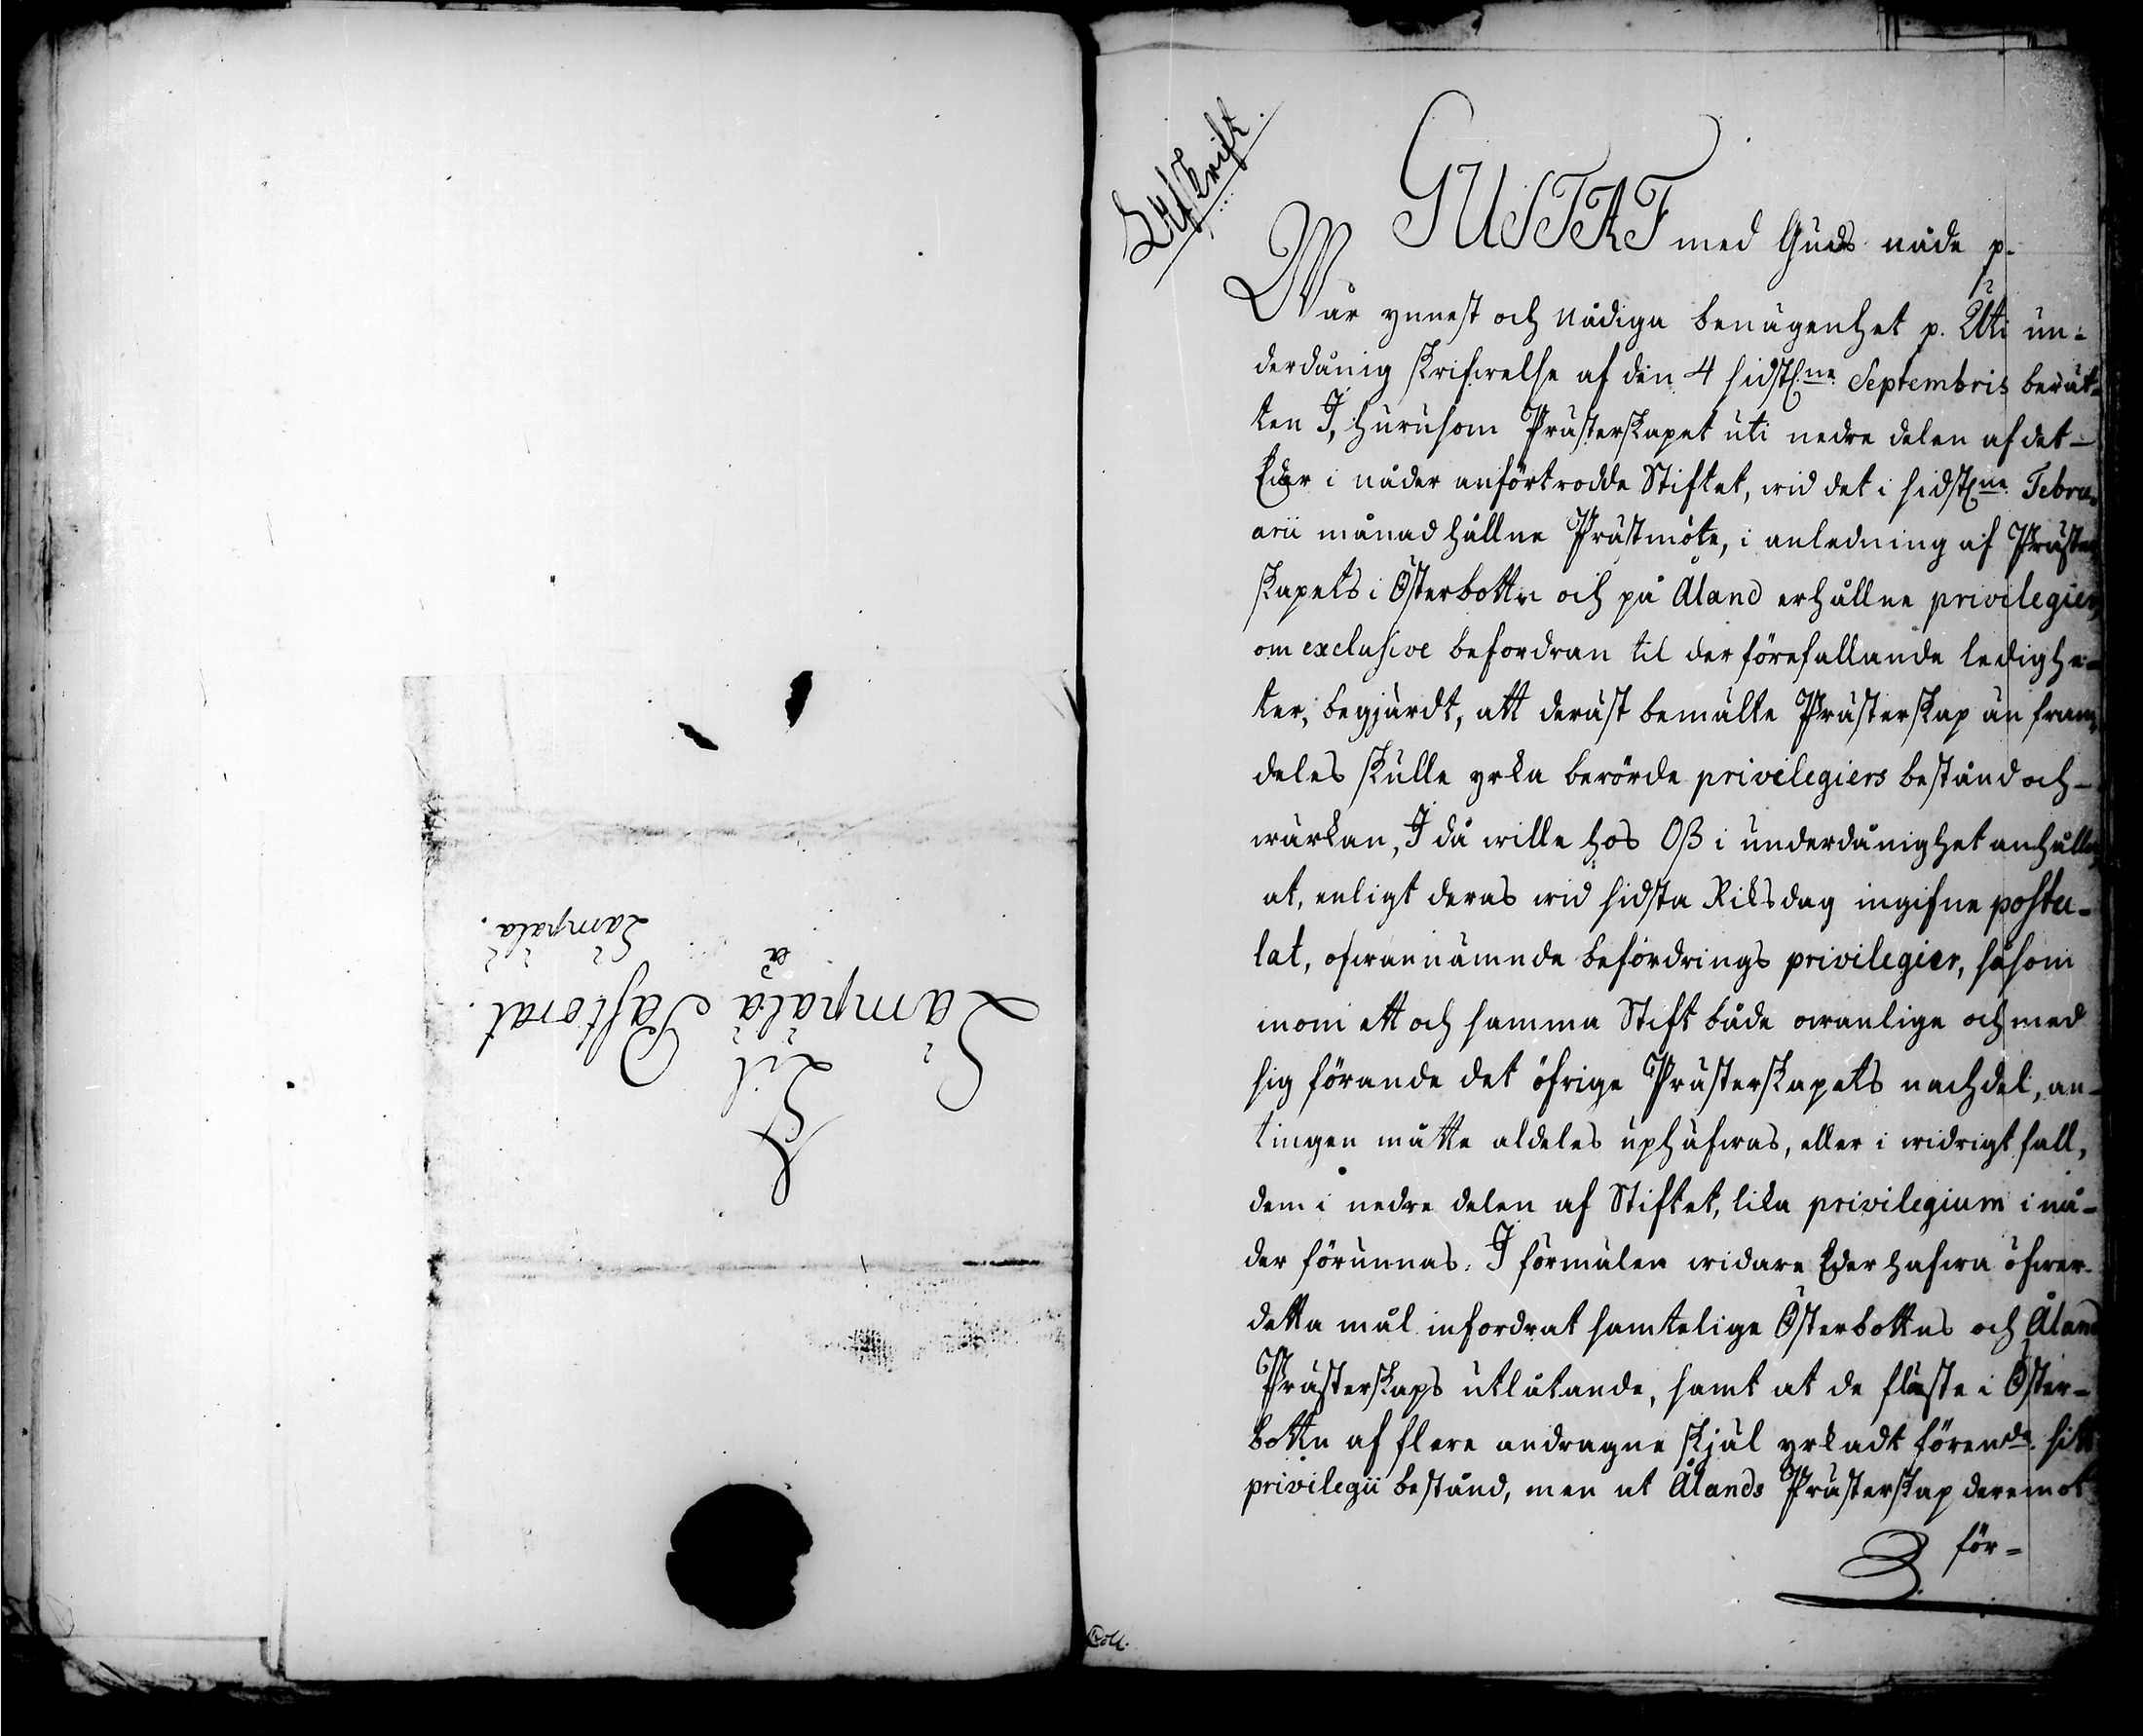 Til
Lampala Pastorat.
à
Lampala.
Afskrift.
GUSTAF med Guds nåde p.
Wår ynnest och nådiga benägenhet p. Uti un=
derdånig skrifwelse af den 4 sidstl:ne Septembris berät=
ten I, huruhsom Prästerskapet uti nedre delen af det
Eder i nåder anförtrodde Stiftet, wid det i sidstl:ne Febru=
arii månad hållne Prästmöte, i anledning af Präster
skapets i Österbottn och på Åland erhållne privilegier,
om exclusive befordran til der förefallande ledighe=
ter, begjärdt, att deräst bemälte Prästerskap än fram=
deles skulle yrka berörde privilegiers bestånd och
wärkan, I då wille hos Oß i underdånighet anhålla,
at, enligt deras wid sidsta Riksdag ingifne postu=
lat, ofwannämnde befordrings privilegier, såsom
inom ett och samma Stift både owanlige och med
sig förande det öfrige Prästerskapets nachdel, an=
tingen måtte aldeles uphäfwas, eller i widrigt fall,
dem i nedre delen af Stiftet, lika privilegium i nå=
der förunnas. I förmälen widare Eder hafwa öfwer
detta mål infordrat samtelige Österbottns och Åland
Prästerskaps utlåtande, samt at de fläste i Öster=
bottn af flere andragne skjäl yrkadt förende sitt
privilegii bestånd, men at Ålands Prästerskap deremot
för=
Coll.